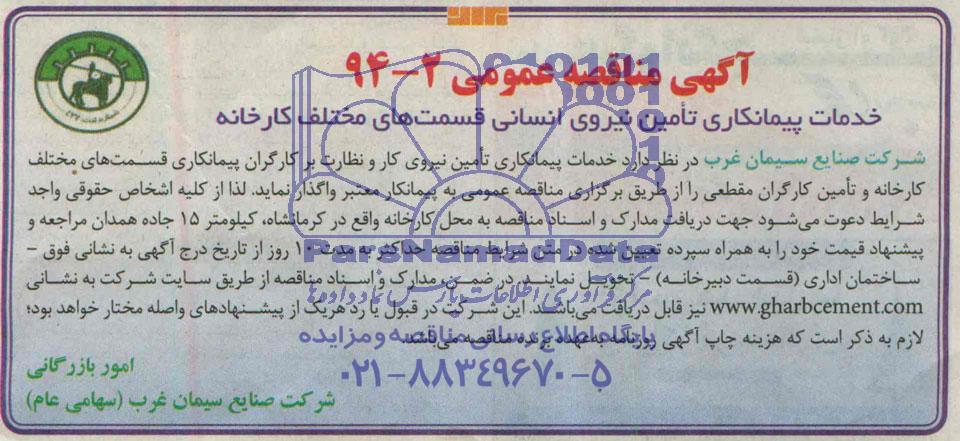 آگهی مناقصه عمومی ۳-۹۴
خدمات پیمانکاری تأمین نیروی انسانی قسمت‌های مختلف کارخانه
شرکت صنایع سیمان غرب در نظر دارد خدمات پیمانکاری تأمین نیروی کار و نظارت بر کارگران پیمانکاری قسمت‌های مختلف
کارخانه و تأمین کارگران مقطعی را از طریق برگزاری مناقصه عمومی به پیمانکار معتبر واگذار نماید. لذا از کلیه اشخاص حقوقی واجد
شرایط دعوت می‌شود جهت دریافت مدارک و اسناد مناقصه به محل کارخانه واقع در کرمانشاه، کیلومتر ۱۵ جاده همدان مراجعه و
پیشنهاد قیمت خود را به همراه سپرده تعیین شده در متن شرایط مناقصه حداکثر به مدت ۱۰ روز از تاریخ درج آگهی به نشانی فوق -
ساختمان اداری (قسمت دبیرخانه) - تحویل نمایند. در ضمن مدارک و اسناد مناقصه از طریق سایت شرکت به نشانی
www.gharbcement.com نیز قابل دریافت می‌باشند. این شرکت در قبول یا رد هریک از پیشنهادهای واصله مختار خواهد بود؛
لازم به ذکر است که هزینه چاپ آگهی روزنامه به عهده برنده مناقصه می‌باشد.
امور بازرگانی
شرکت صنایع سیمان غرب (سهامی عام)
ParsNamadData
مرکز فرآوری اطلاعات پارس نماد داده‌ها
پایگاه اطلاع رسانی مناقصه و مزایده
۰۲۱-۸۸۳۴۹۶۷۰-۵